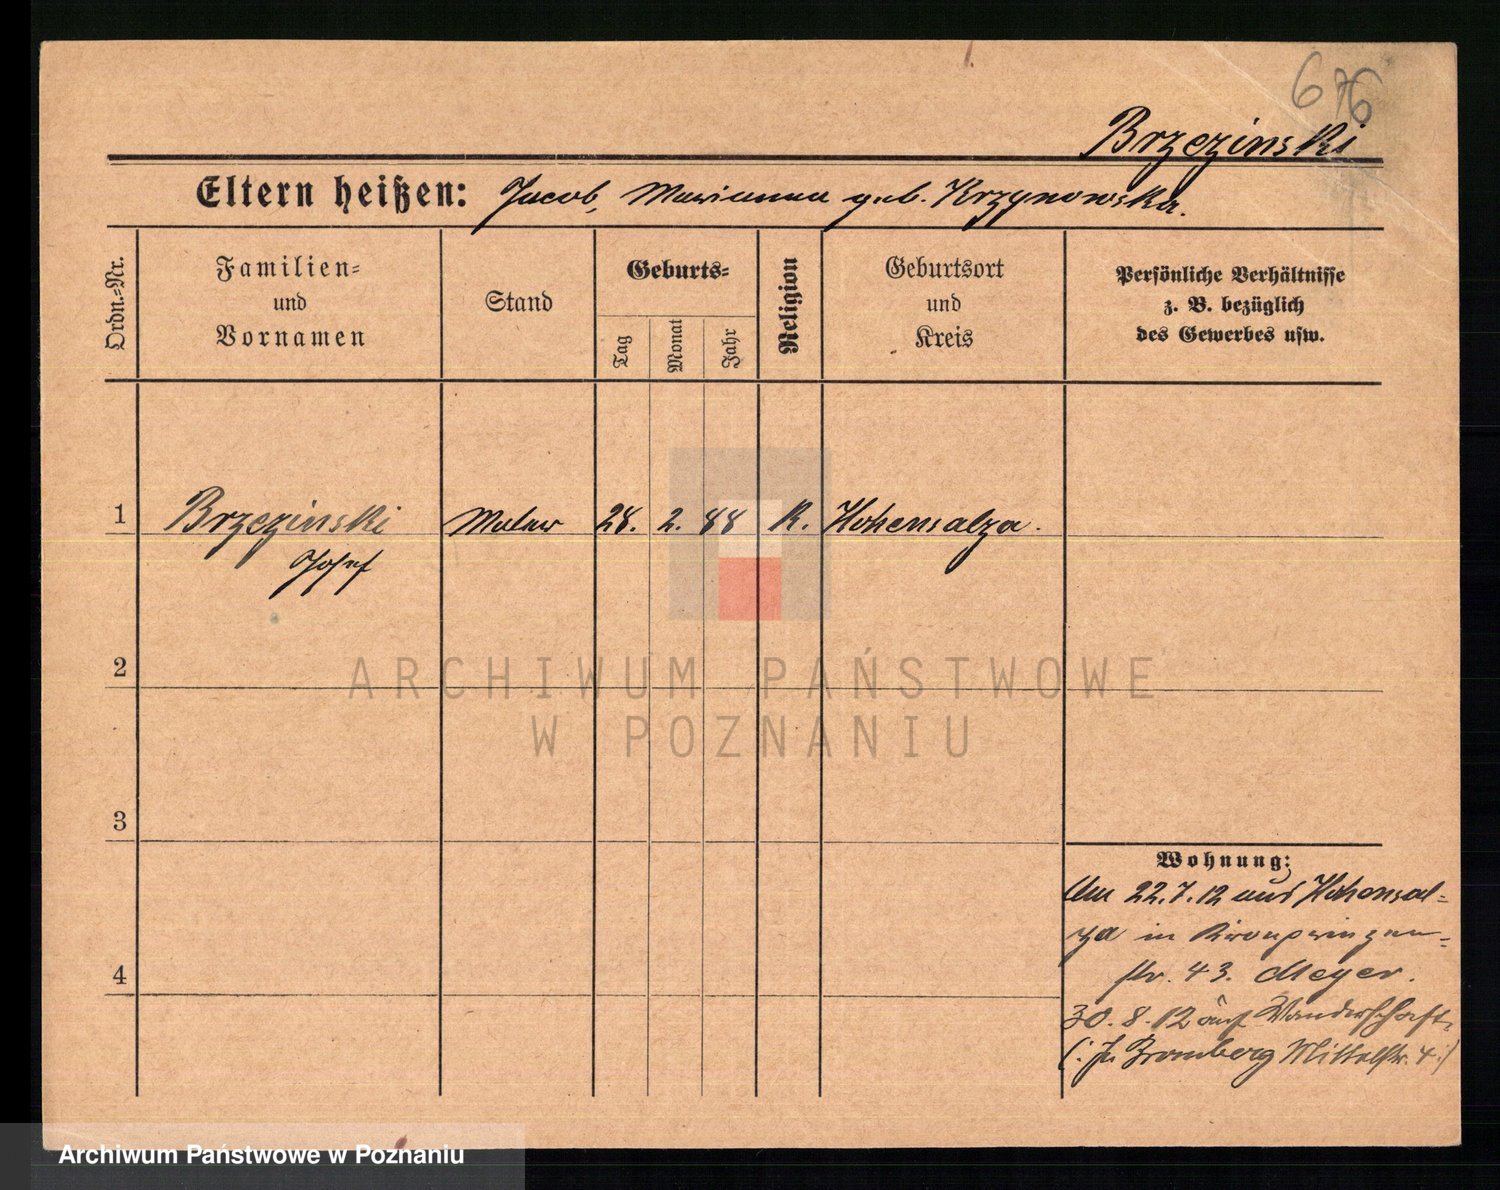 676
Brzezinski
Eltern heißen: Jacob, Marianna geb. Krzynowska.
Ordn.-Nr.
Familien-
und
Vornamen
Stand
Geburts-
Tag
Monat
Jahr
Religion
Geburtsort
und
Kreis
Persönliche Verhältnisse
z. B. bezüglich
des Gewerbes usw.
1 Brzezinski Maler 28. 2. 88 K. Hohensalza.
Josef
2
3
4
Wohnung:
Am 22.7.12 aus Hohensal-
za in Kronprinzen-
str. 43. Meyer.
30.8.12 auf Wanderschaft.
(: In Bromberg Mittelstr. 4 :)
ARCHIWUM PAŃSTWOWE
W POZNANIU
Archiwum Państwowe w Poznaniu